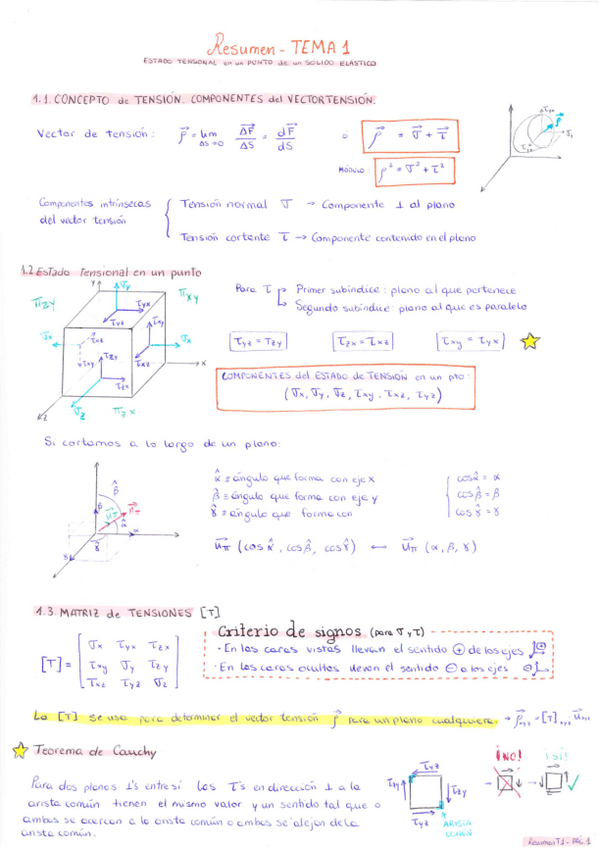 Resumen - TEMA 1
ESTADO TENSIONAL en un PUNTO de un SÓLIDO ELÁSTICO
1.1. CONCEPTO de TENSIÓN. COMPONENTES del VECTOR TENSIÓN.
Vector de tensión: ρ⃗ = lim ΔS→0 ΔF⃗/ΔS = dF⃗/dS o ρ⃗ = σ⃗ + τ⃗
MÓDULO ρ² = σ² + τ²
Componentes intrínsecas del vector tensión
Tensión normal σ → Componente ⊥ al plano
Tensión cortante τ → Componente contenido en el plano
1.2 Estado tensional en un punto
Para τ
Primer subíndice: plano al que pertenece
Segundo subíndice: plano al que es paralelo
τyz = τzy
τzx = τxz
τxy = τyx
COMPONENTES del ESTADO de TENSIÓN en un pto:
(σx, σy, σz, τxy, τxz, τyz)
Si cortamos a lo largo de un plano:
α̂ ≡ ángulo que forma con eje x
β̂ ≡ ángulo que forma con eje y
γ̂ ≡ ángulo que forma con
cos α̂ = α
cos β̂ = β
cos γ̂ = γ
u⃗π (cos α̂, cos β̂, cos γ̂) ↔ u⃗π (α, β, γ)
1.3 MATRIZ de TENSIONES [T]
[T] =
σx τyx τzx
τxy σy τzy
τxz τyz σz
Criterio de signos (para σ y τ)
· En las caras vistas llevan el sentido ⊕ de los ejes
· En las caras ocultas llevan el sentido ⊖ a los ejes
La [T] se usa para determinar el vector tensión ρ⃗ para un plano cualquiera.
Teorema de Cauchy
Para dos planos ⊥s entre sí las τ's en dirección ⊥ a la
arista común tienen el mismo valor y un sentido tal que o
ambas se acercan a la arista común o ambas se alejan de la
arista común.
τyz
τzy
τzy
τyz
ARISTA
COMÚN
¡NO!
¡SÍ!
Resumen T1 - PÁG. 1